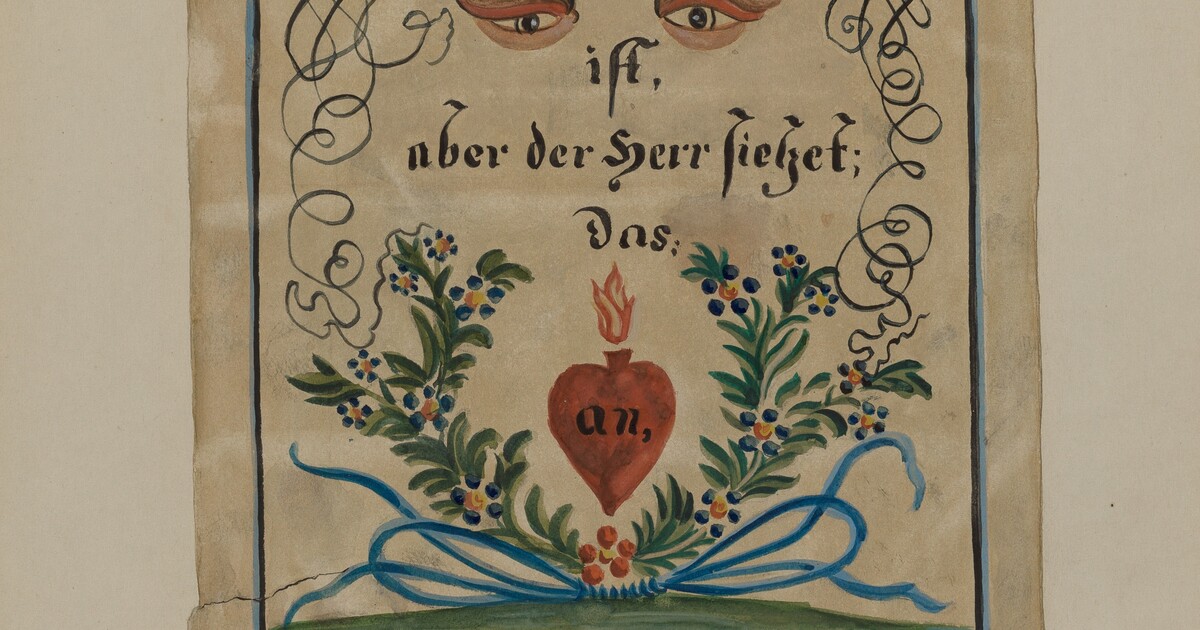 ist,
aber der Herr siehet;
Das:
an,